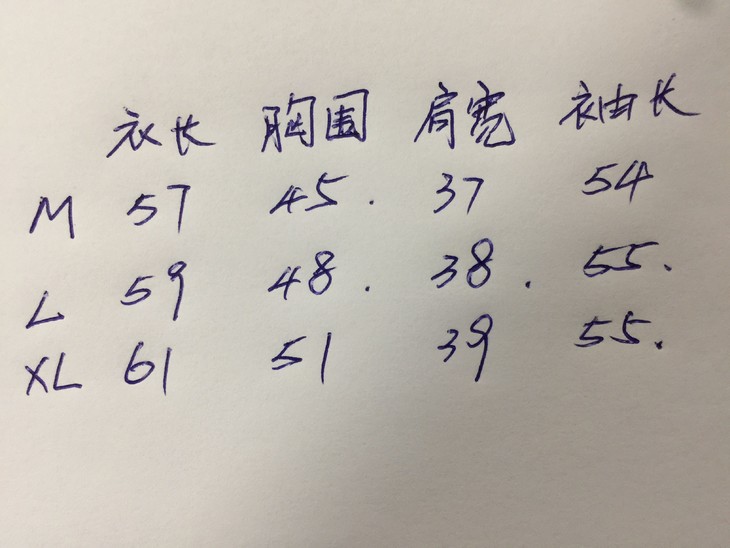 衣长 胸围 肩宽 袖长
M 57 45. 37 54
L 59 48. 38. 55.
XL 61 51 39 55.